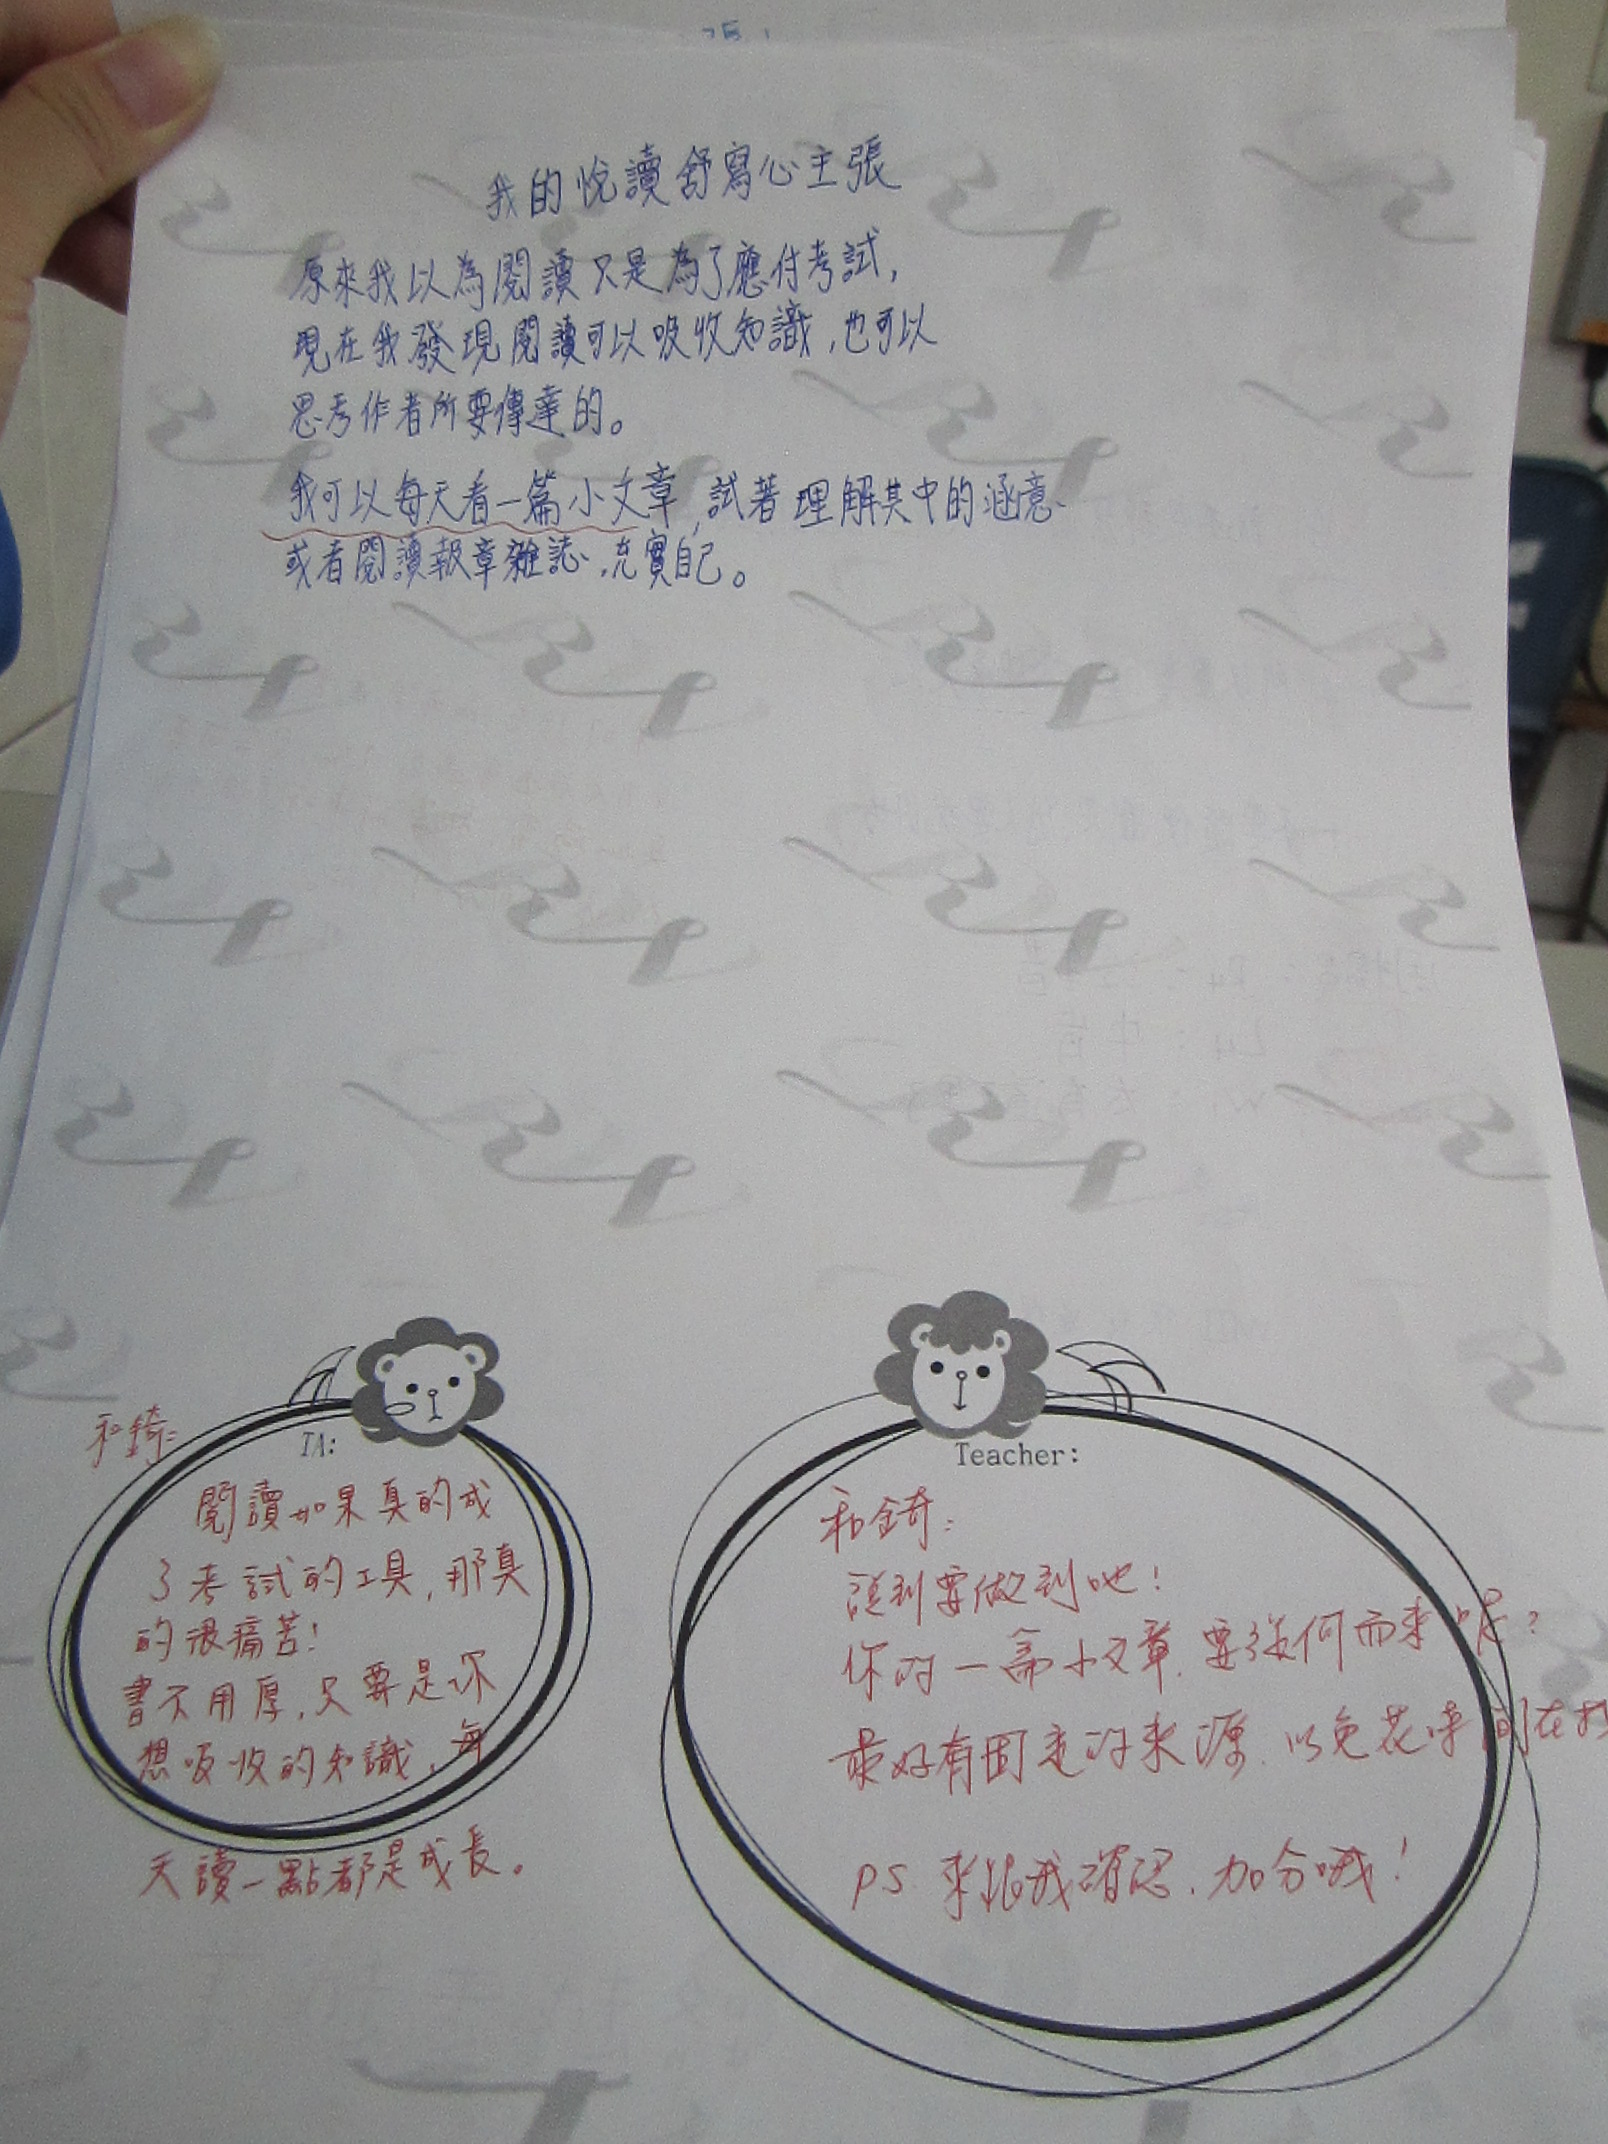 我的悅讀舒寫心主張
原來我以為閱讀只是為了應付考試，
現在我發現閱讀可以吸收知識，也可以
思考作者所要傳達的。
我可以每天看一篇小文章，試著理解其中的涵意
或者閱讀報章雜誌，充實自己。
和錡：
TA:
閱讀如果真的成
了考試的工具，那真
的很痛苦！
書不用厚，只要是你
想吸收的知識，每
天讀一點都是成長。
Teacher:
和錡：
說到要做到吔！
你的一篇小文章，要從何而來呢？
最好有固定的來源，以免花時間在找
PS. 來跟我確認，加分哦！